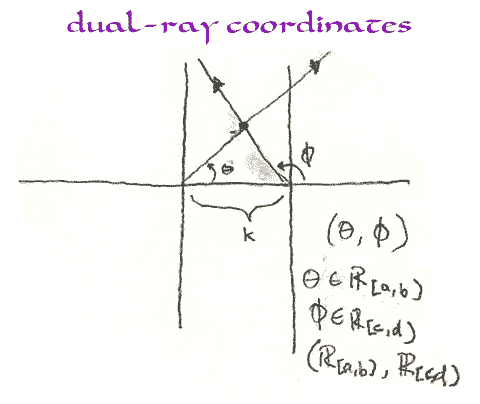 dual-ray coordinates
θ
ϕ
k
(θ, ϕ)
θ ∈ ℝ[a,b)
ϕ ∈ ℝ[c,d)
(ℝ[a,b), ℝ[c,d))